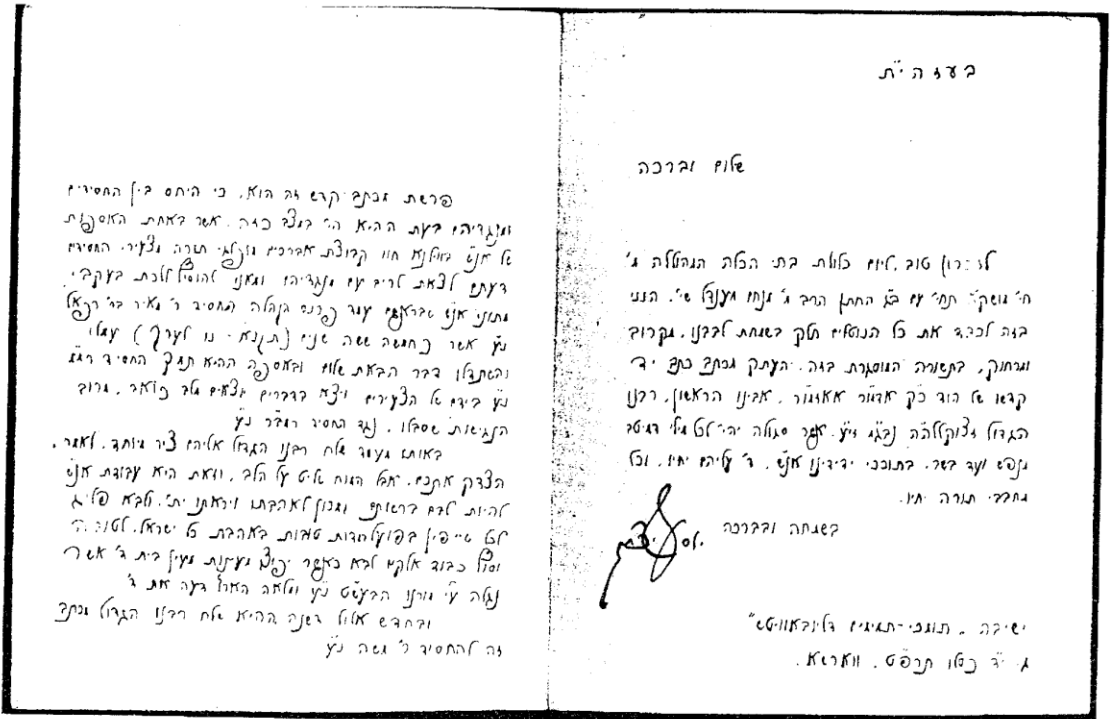 בעזהי"ת
שלום וברכה
לזכרון טוב, ליום כלולת בתי הכלה המהוללה מ'
חי' מושקא תחי' עם ב"ג החתן הרב מ' מנחם מענדל שי', הנני
בזה לכבד את כל הנוטלים חלק בשמחת לבבנו, מקרוב
ומרחוק, בתשורה המוסגרת בזה, העתק מכתב כתב יד
קדשו של הוד כ"ק אדמו"ר אאזמו"ר, אבינו הראשון, רבנו
הגדול זצוקללה"ה נבג"מ זי"ע, אשר סגולה יהי' לכל מילי דמיטב
מנפש ועד בשר, בתוככי ידידינו אנ"ש, ד' עליהם יחיו, וכל
מחבבי תורה יחיו.
בשמחה ובברכה
יוסף יצחק
ישיבה "תומכי-תמימים דליובאוויטש"
ג. י"ד כסלו תרפ"ט, ווארשא.
פרשת מכתב קדש זה הוא, כי היחס בין החסידים
ומנגדיהם בעת ההיא הי' במצב כזה, אשר באחת האספות
של אנ"ש בווילנא חוו קבוצת אברכים מופלגי תורה מצעירי החסידים
דעתם לצאת לריב עם מנגדיהם ומאנו להוסיף ללכת בעקבי
מתוני אנ"ש שבראשם עמד פרנס הקהלה החסיד ר' מאיר בר' רפאל
נ"ע אשר כחמשה ששה שנים (תקנא - נו לערך) עמלו
והשתדלו דבר הבאת שלום ובאספה ההיא תמך החסיד רמ"מ
נ"ע בידם של הצעירים ויצא בדברים נמרצים מלב כואב, מרוב
הנגישות שסבלו, נגד החסיד רמב"ר נ"ע
באותו מעמד שלח רבנו הגדול אליהם ציר מיוחד, לאמר,
הצדק אתכם, אבל המוח שליט על הלב, וזאת היא עבודת אנ"ש
להיות לבם ברשותם ומכון לאהבתו ויראתו ית', ולבא פליג
לכל שייפין בפועל מדות טובות באהבת כל ישראל,
וסוף כבוד אלקים לבא כאשר יפוצו מעינות מעין בית ד' אשר
נגלה ע"י מורנו הבעש"ט נ"ע ומלאה הארץ דעה את ד'
ובחדש אלול דשנה ההיא שלח רבנו הגדול מכתב
זה להחסיד ר' משה נ"ע